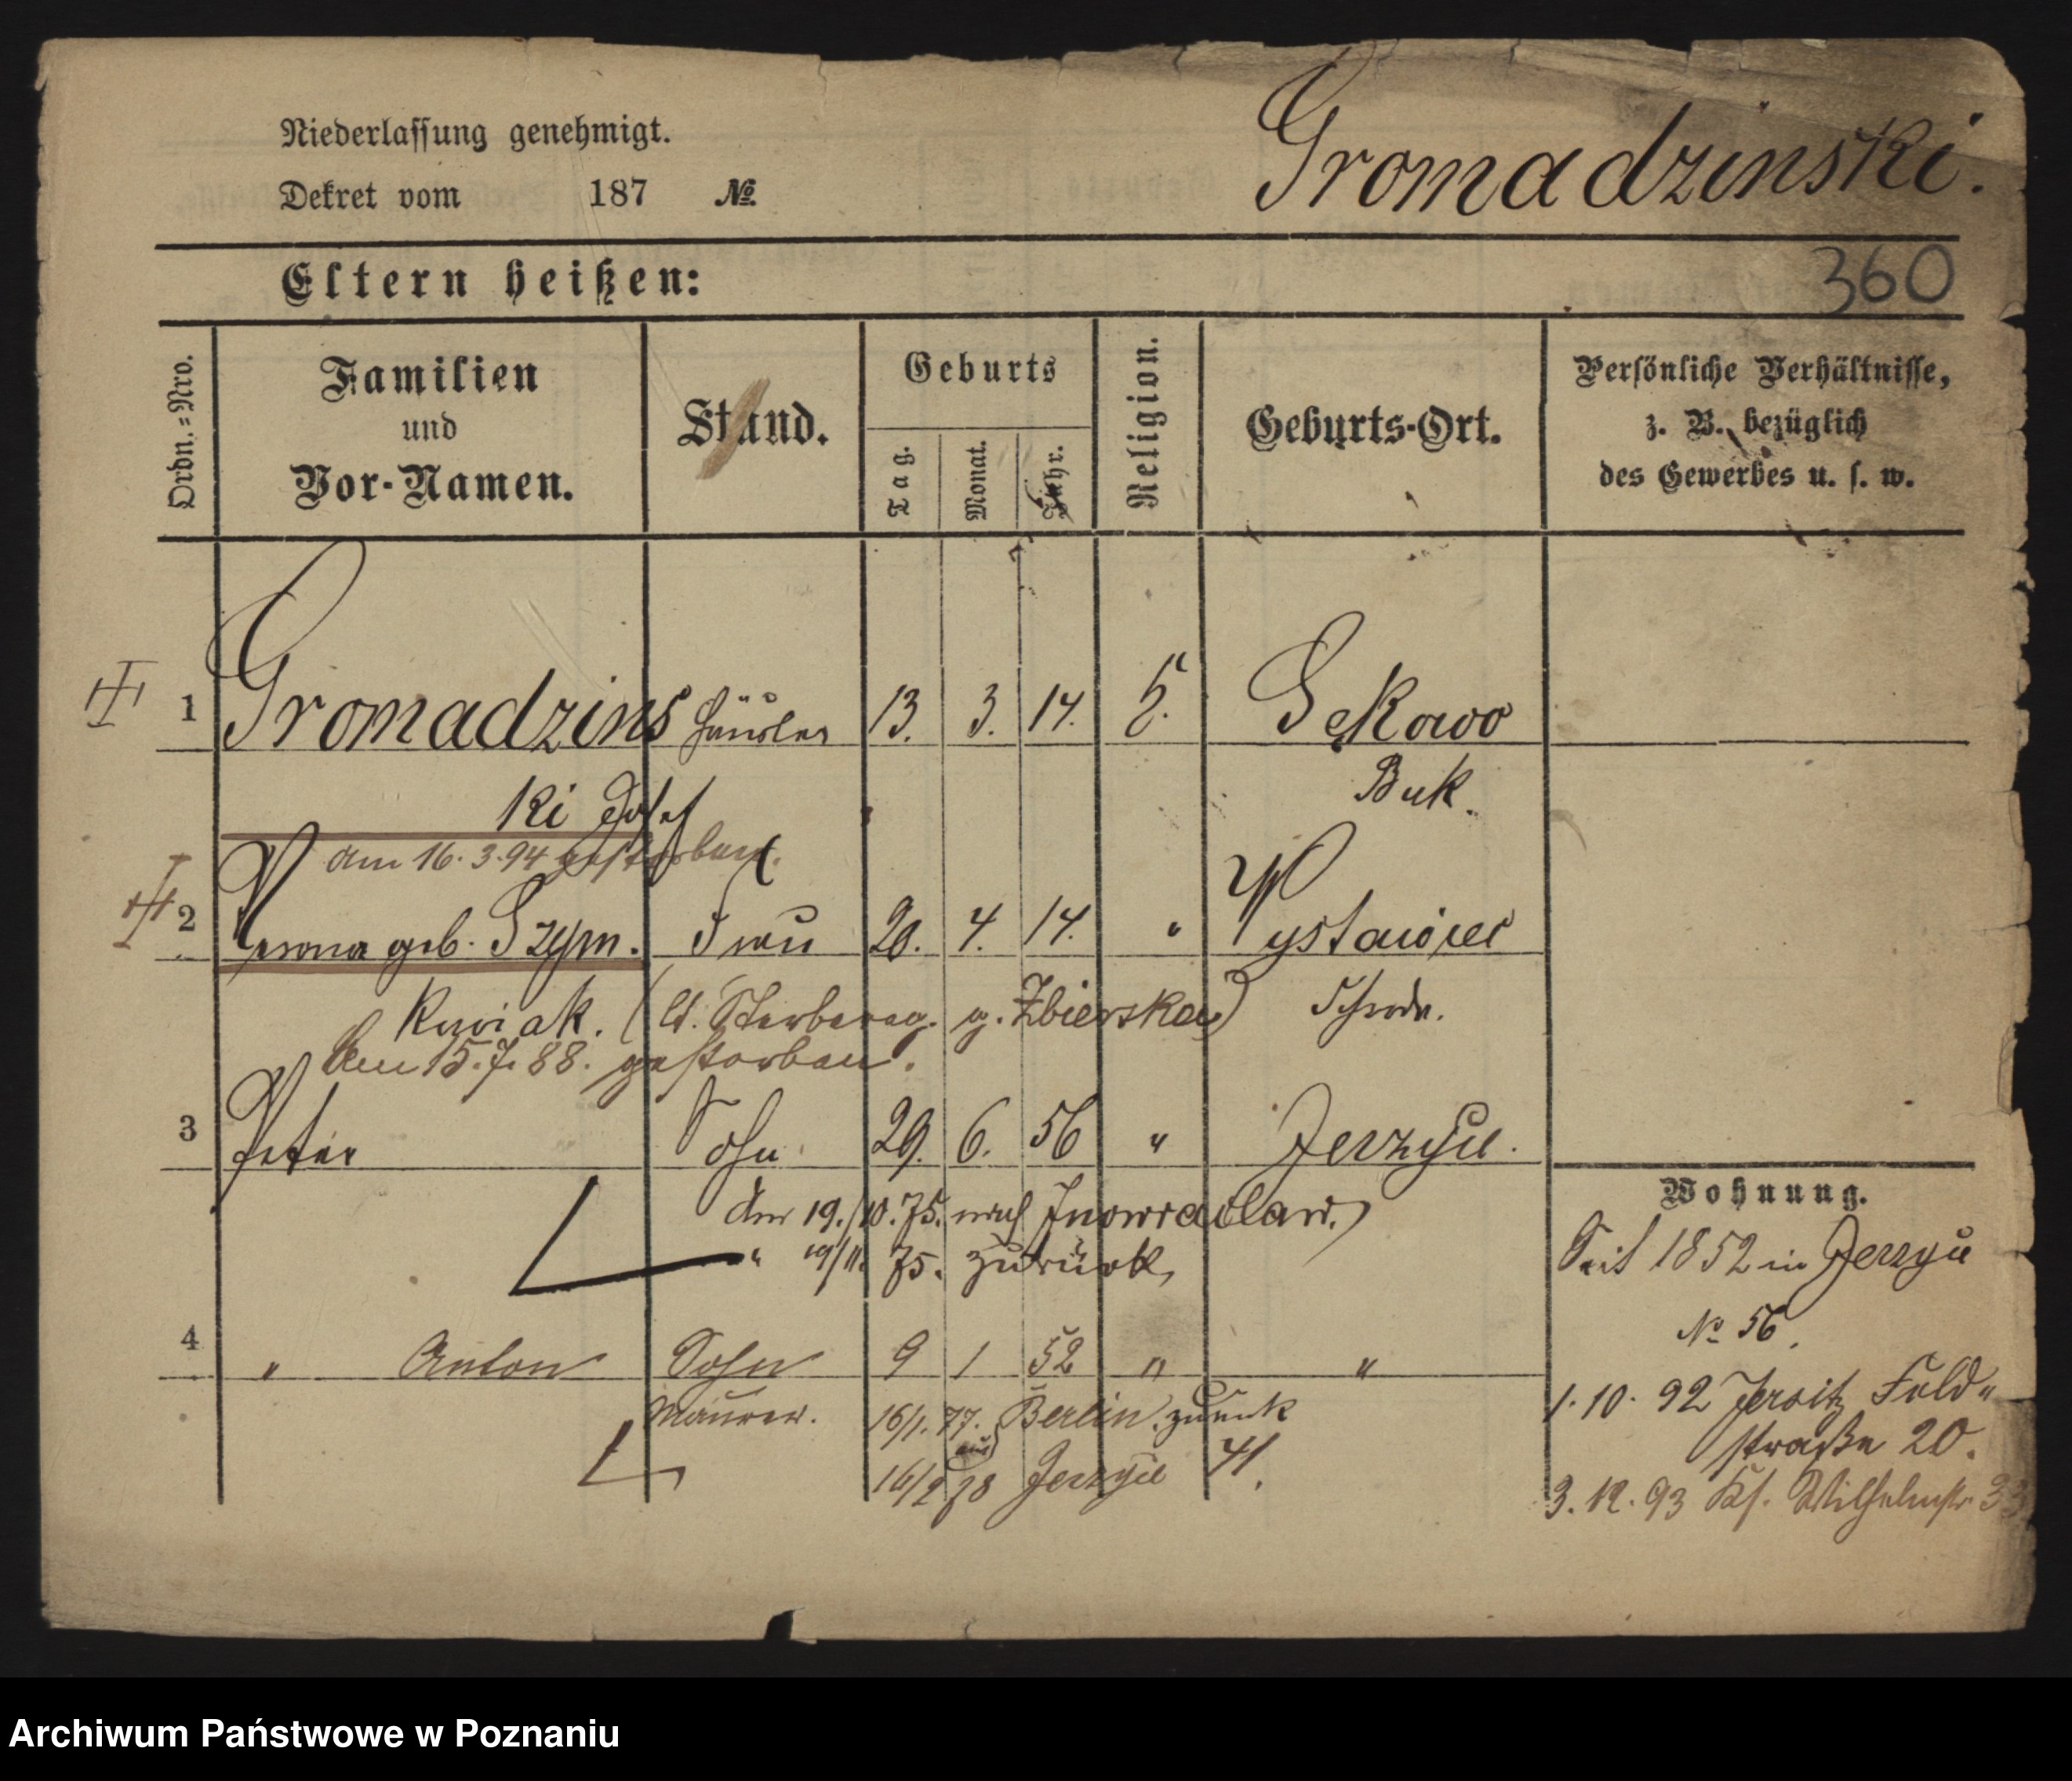 Niederlassung genehmigt.
Dekret vom 187 №
Gromadzinski.
Eltern heißen:
360
Ordn.=Nro.
Familien
und
Vor-Namen.
Stand.
Geburts
Tag.
Monat.
Jahr.
Religion.
Geburts-Ort.
Persönliche Verhältnisse,
z. B. bezüglich
des Gewerbes u. s. w.
1 Gromadzins Häusler 13. 3. 14. Sękowo
ki Josef Buk.
am 16.3.94 gestorben.
2 geb. Szym. Frau 20. 4. 14. "
kowiak. (lt. g. Zbierska) Schroda.
Am 15.7.88. gestorben.
3 Peter Sohn 29. 6. 56 " Jerzyce.
den 19./10.75. nach Inowraclaw.
" 19/11. 75. zurück,
Wohnung.
Seit 1852 in Jerzyce
№ 56.
4 " Anton Sohn 9 1 52 " "
Maurer. 16/1.77. Berlin zurück
aus
16/2 78 Jerzyce 41.
1.10.92 Jersitz Feld-
straße 20.
3.12.93 Wilhelmstr. 33
Archiwum Państwowe w Poznaniu